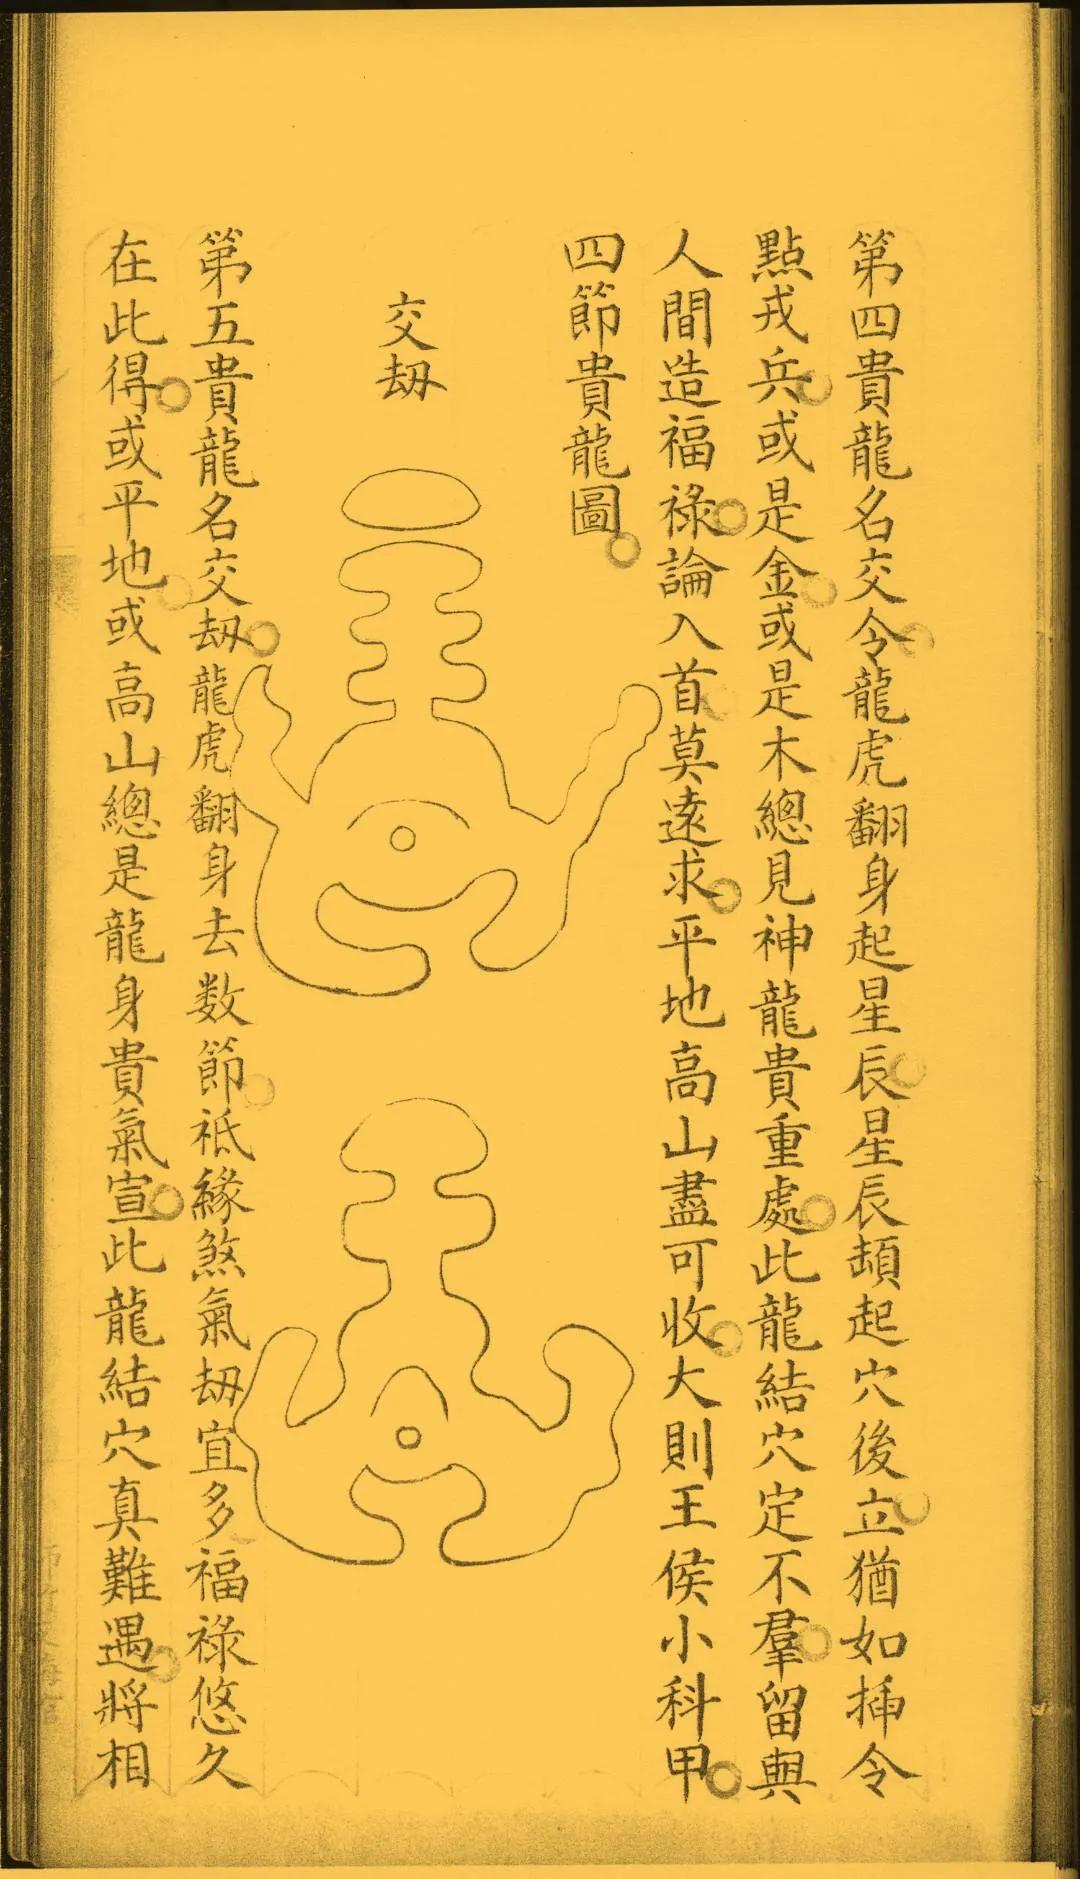 第四貴龍名交令龍虎翻身起星辰星辰頓起穴後立猶如插令
點戎兵或是金或是木總見神龍貴重處此龍結穴定不羣留與
人間造福祿論入首莫遠求平地高山盡可收大則王侯小科甲
四節貴龍圖
交刼
第五貴龍名交刼龍虎翻身去数節祗緣煞氣刼宜多福祿悠久
在此得或平地或高山總是龍身貴氣宣此龍結穴真難遇將相